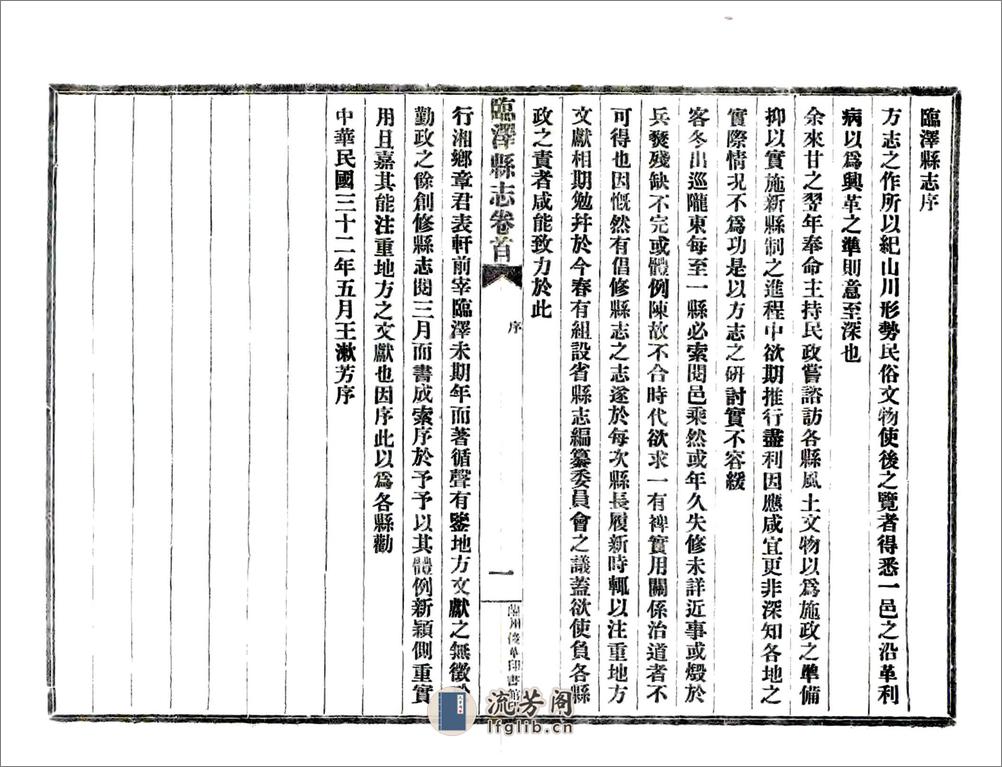 臨澤縣志序
方志之作所以紀山川形勢民俗文物使後之覽者得悉一邑之沿革利
病以爲興革之準則意至深也
余來甘之翌年奉命主持民政嘗諮訪各縣風土文物以爲施政之準備
抑以實施新縣制之進程中欲期推行盡利因應咸宜更非深知各地之
實際情況不爲功是以方志之研討實不容緩
客冬出巡隴東每至一縣必索閱邑乘然或年久失修未詳近事或燬於
兵燹殘缺不完或體例陳故不合時代欲求一有裨實用關係治道者不
可得也因慨然有倡修縣志之志遂於每次縣長履新時輒以注重地方
文獻相期勉幷於今春有組設省縣志編纂委員會之議蓋欲使負各縣
政之責者咸能致力於此
臨澤縣志卷首
序
一
蘭州俊華印書館
行湘鄉章君表軒前宰臨澤未期年而著循聲有鑒地方文獻之無徵於
勤政之餘創修縣志閱三月而書成索序於予予以其體例新穎側重實
用且嘉其能注重地方之文獻也因序此以爲各縣勸
中華民國三十二年五月王漱芳序
流芳阁
lfglib.cn